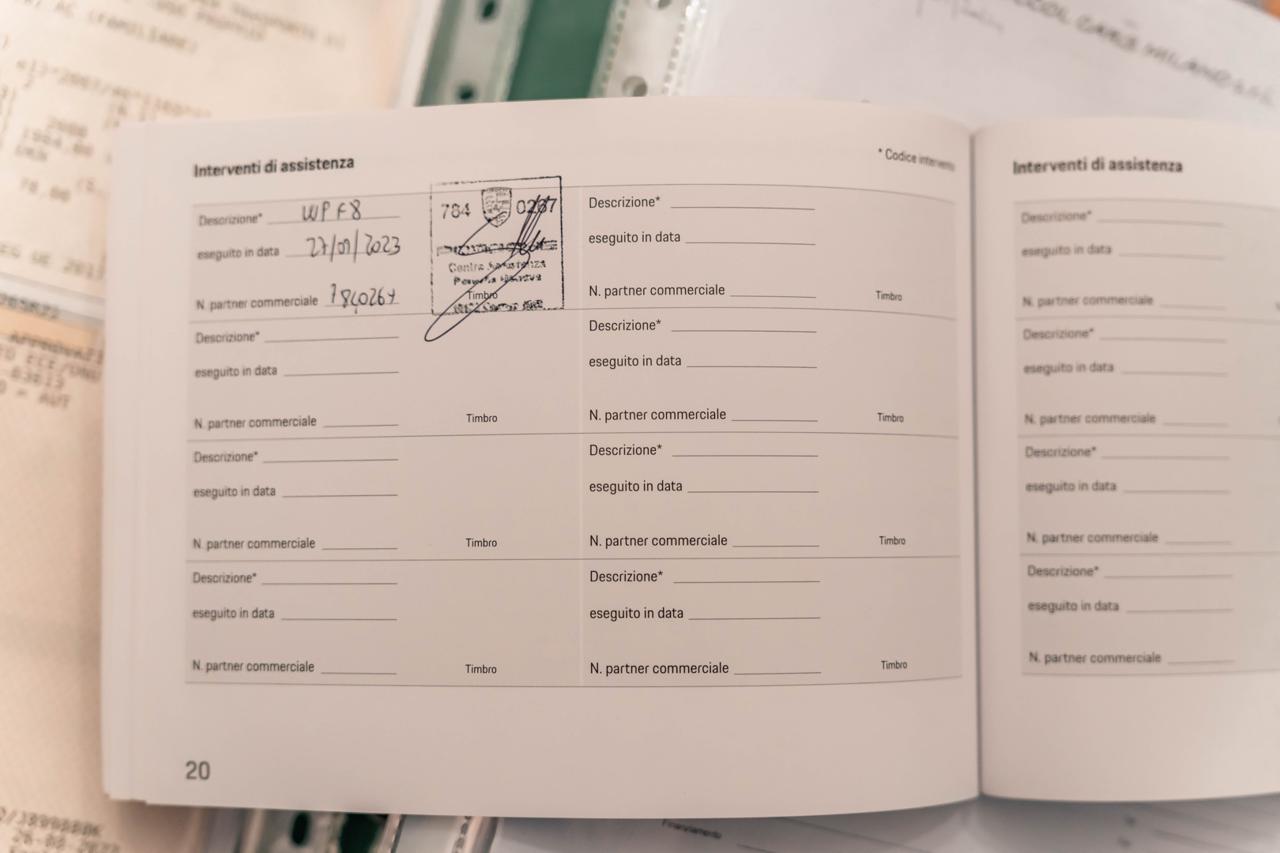 Interventi di assistenza
* Codice intervento
Descrizione* WPF8
eseguito in data 27/09/2023
N. partner commerciale 7840267
784 0267
Centro Assistenza
Timbro
Descrizione*
eseguito in data
N. partner commerciale
Timbro
Descrizione*
eseguito in data
N. partner commerciale
Timbro
Descrizione*
eseguito in data
N. partner commerciale
Timbro
Descrizione*
eseguito in data
N. partner commerciale
Timbro
Descrizione*
eseguito in data
N. partner commerciale
Timbro
Descrizione*
eseguito in data
N. partner commerciale
Timbro
Descrizione*
eseguito in data
N. partner commerciale
Timbro
20
Interventi di assistenza
Descrizione*
eseguito in data
N. partner commerciale
Descrizione*
eseguito in data
N. partner commerciale
Descrizione*
eseguito in data
N. partner commerciale
Descrizione*
eseguito in data
N. partner commerciale
Finanziamento